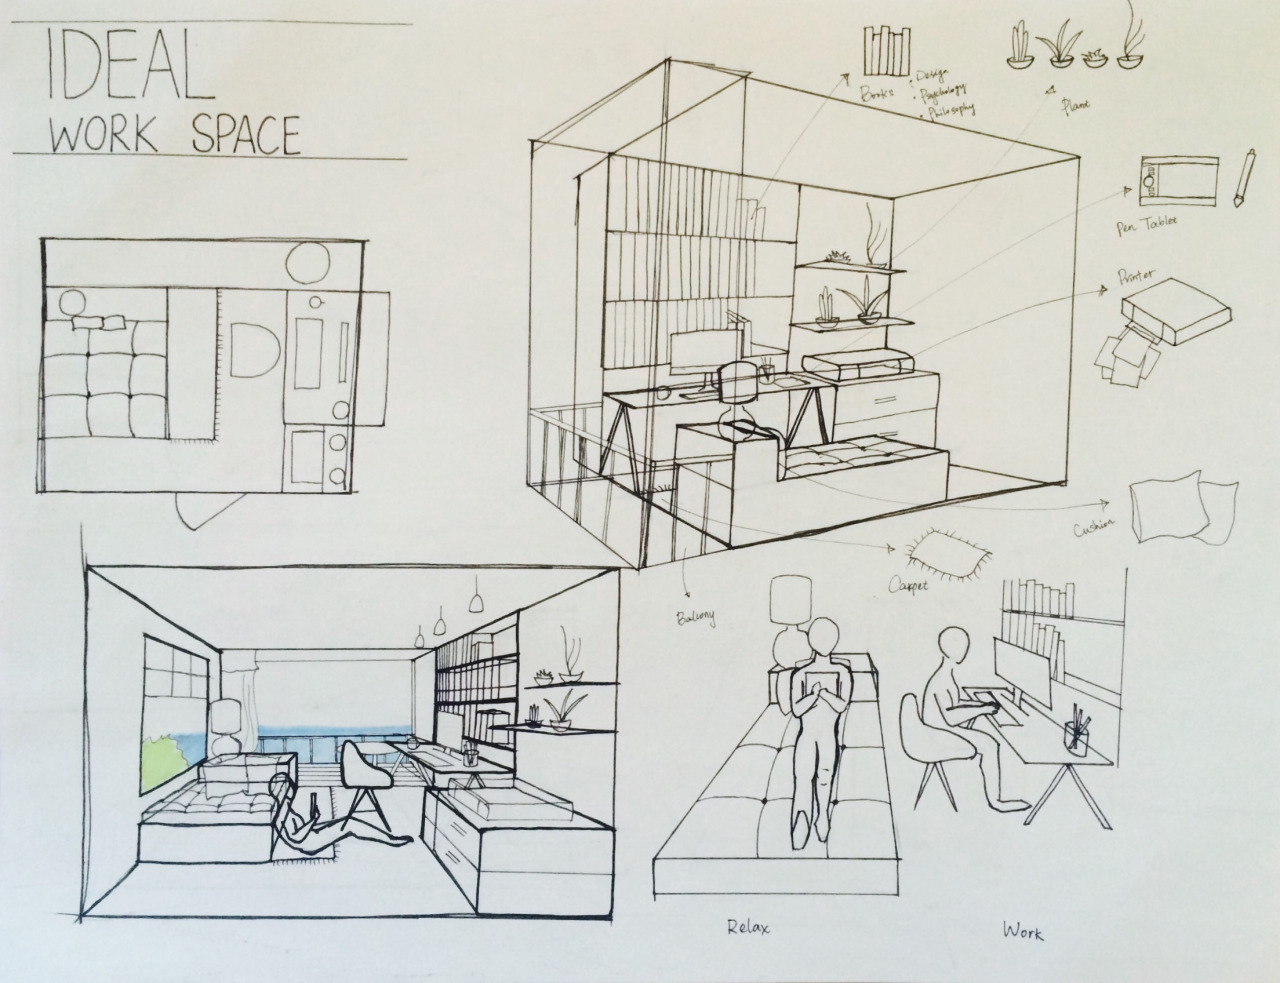 IDEAL
WORK SPACE
Books
• Design
• Psychology
• Philosophy
Plant
Pen Tablet
Printer
Cushion
Carpet
Balcony
Relax
Work